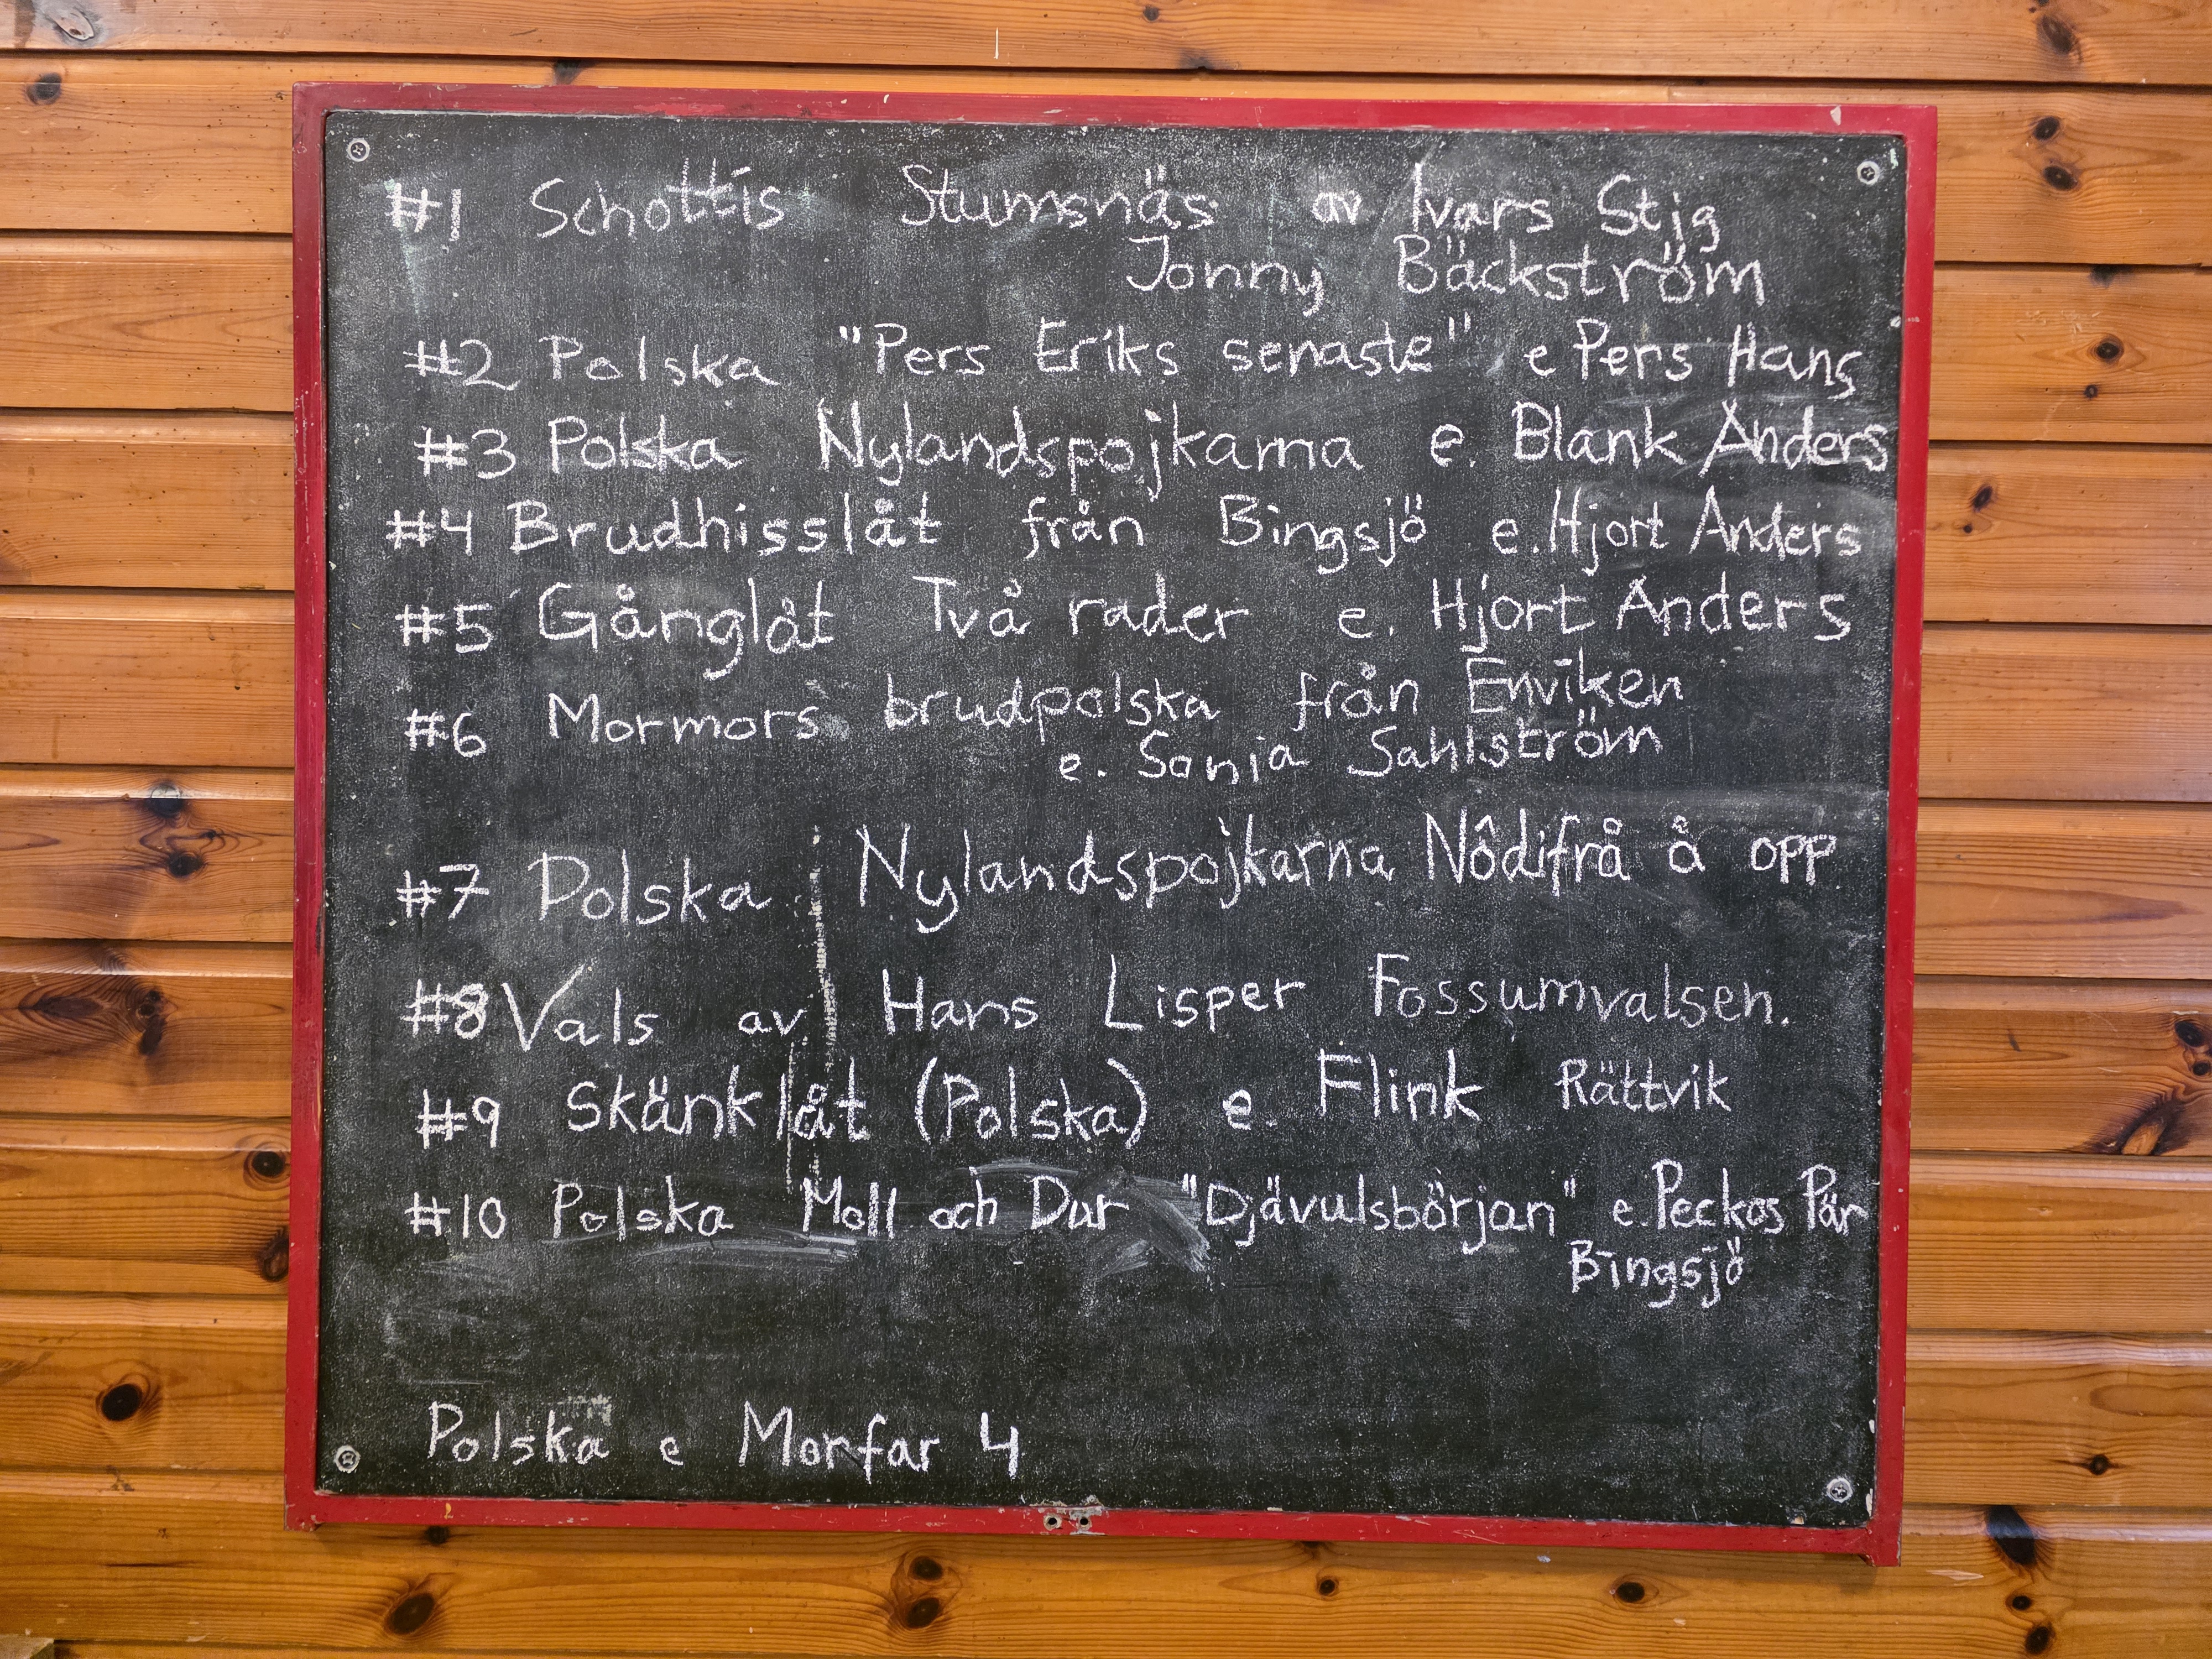 #1 Schottis Stumsnäs av Ivars Stig
Jonny Bäckström
#2 Polska "Pers Eriks senaste" e Pers Hans
#3 Polska Nylandspojkarna e. Blank Anders
#4 Brudhisslåt från Bingsjö e. Hjort Anders
#5 Gånglåt Två rader e. Hjort Anders
#6 Mormors brudpolska från Enviken
e. Sonja Sahlström
#7 Polska Nylandspojkarna Nôdifrå å opp
#8 Vals av Hans Lisper Fossumvalsen.
#9 Skänklåt (Polska) e. Flink Rättvik
#10 Polska Moll och Dur "Djävulsbörjan" e. Peckos Pär
Bingsjö
Polska e Morfar 4